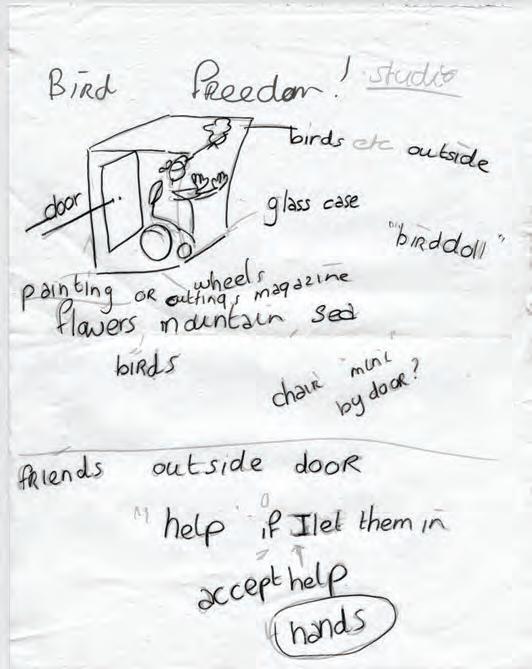 Bird Freedom! studio
birds etc outside
door
glass case
"birddoll"
wheels
painting OR cuttings magazine
flowers mountain sea
birds
chair mini
by door?
friends outside door
"help" if I let them in
accept help
hands